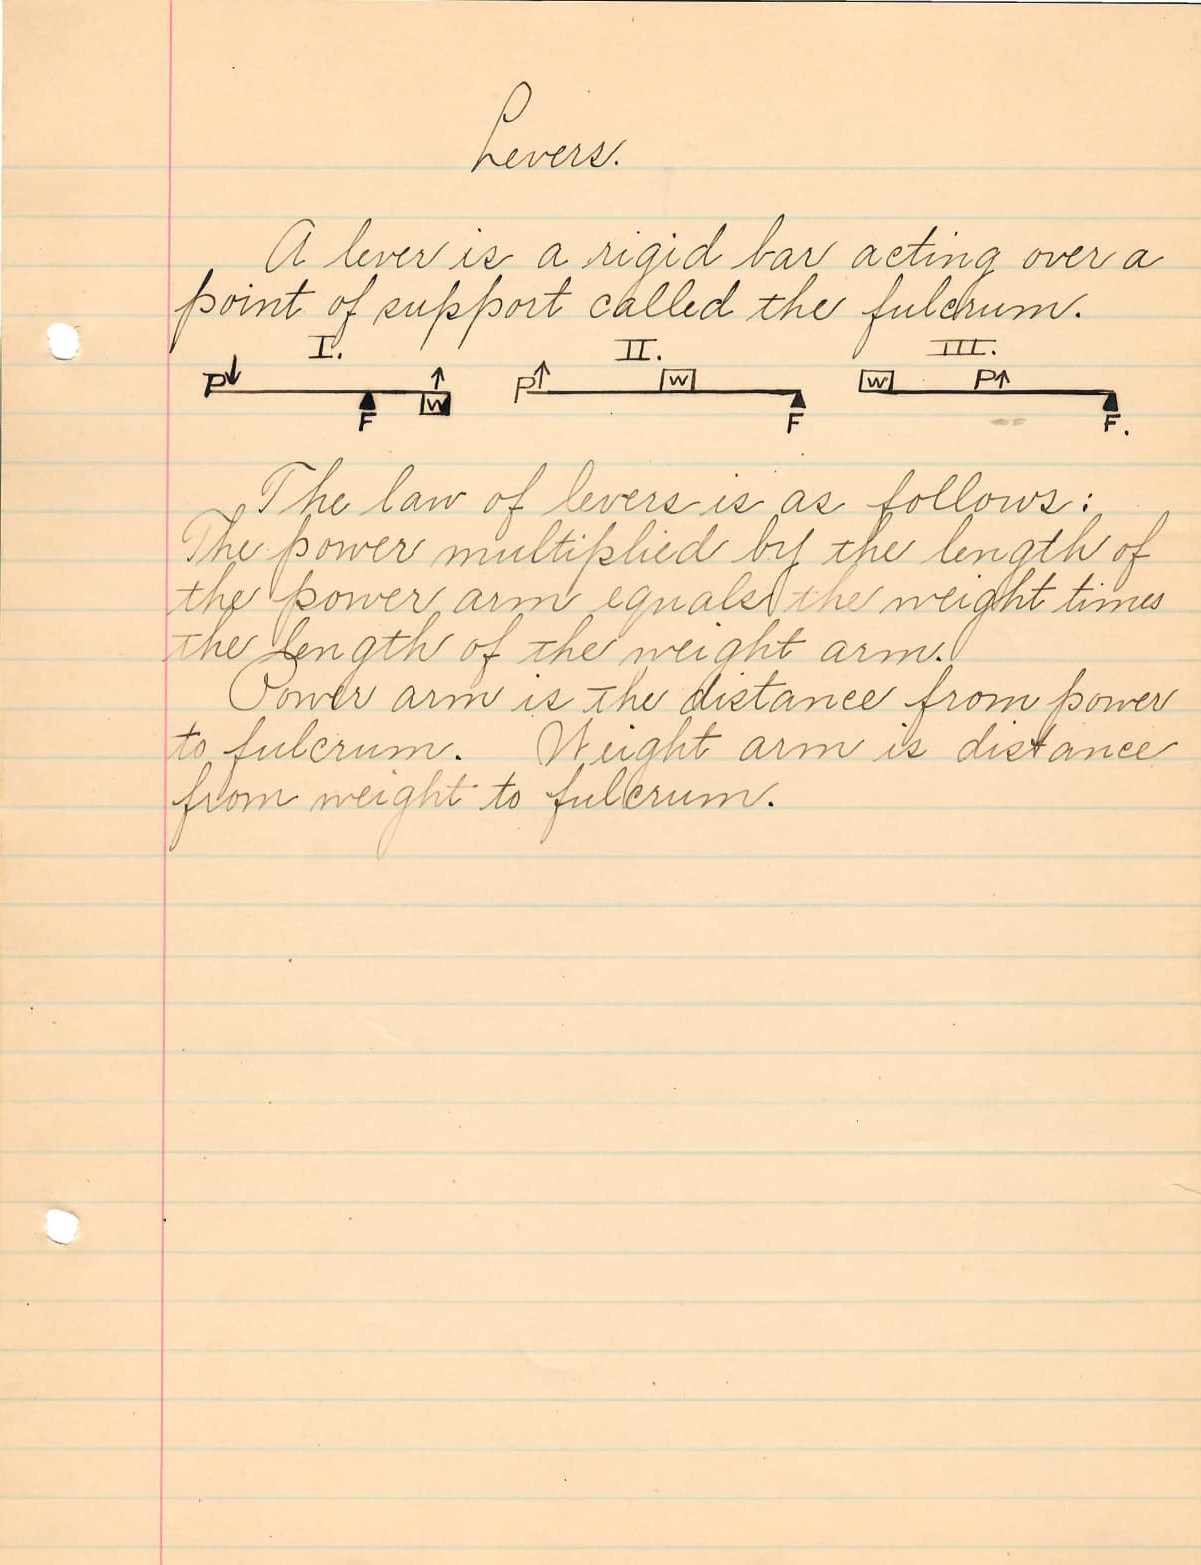 Levers.
A lever is a rigid bar acting over a
point of support called the fulcrum.
I. II. III.
P↓ ↑ P↑ W W P↑
F W F F.
The law of levers is as follows:
The power multiplied by the length of
the power arm equals the weight times
the length of the weight arm.
Power arm is the distance from power
to fulcrum. Weight arm is distance
from weight to fulcrum.